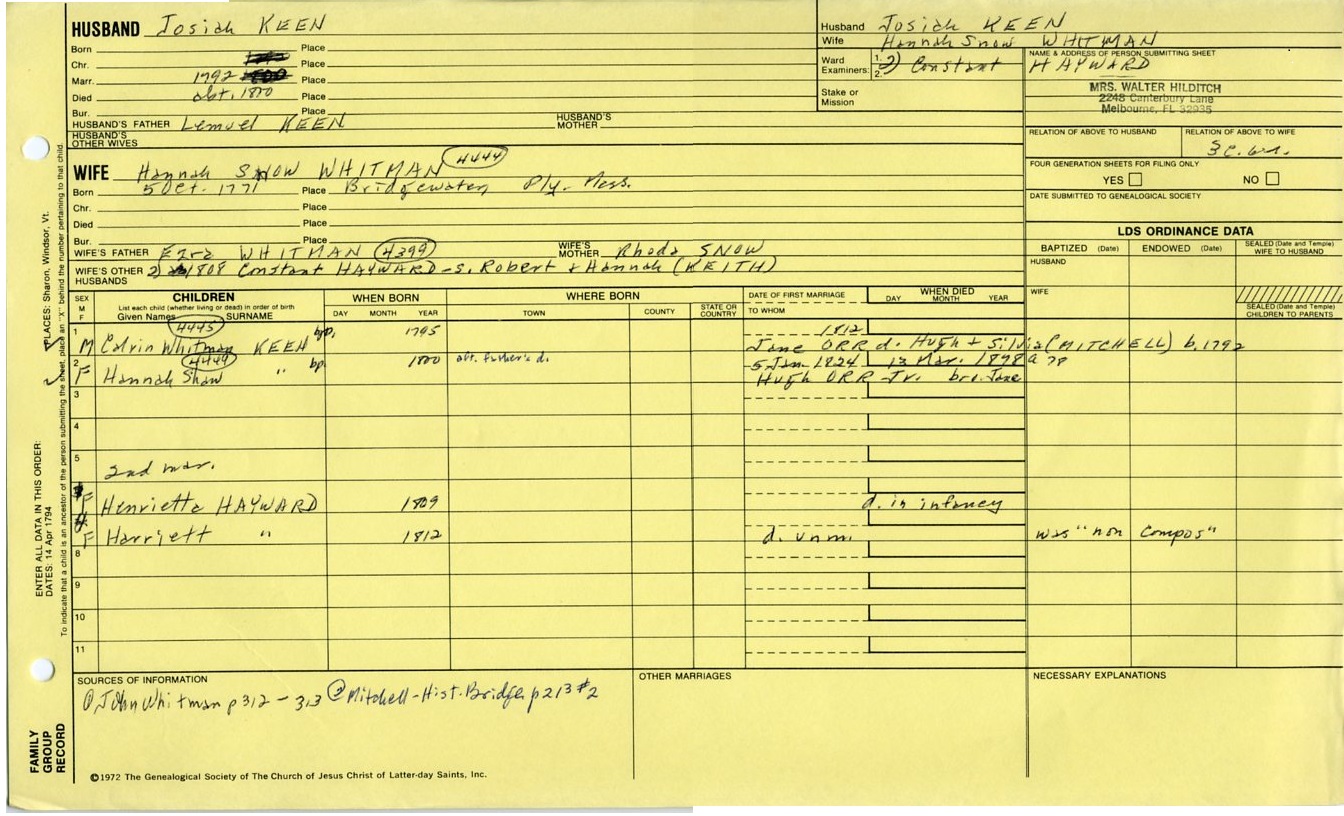 HUSBAND Josiah KEEN
Born Place
Chr. Place
Marr. 1792 Place
Died abt. 1800 Place
Bur. Place
HUSBAND'S FATHER Lemuel KEEN HUSBAND'S MOTHER
HUSBAND'S OTHER WIVES
Husband Josiah KEEN
Wife Hannah Snow WHITMAN
Ward Examiners: 1. 2. 2) Constant HAYWARD
Stake or Mission
NAME & ADDRESS OF PERSON SUBMITTING SHEET
MRS. WALTER HILDITCH
2248 Canterbury Lane
Melbourne, FL 32935
RELATION OF ABOVE TO HUSBAND RELATION OF ABOVE TO WIFE
FOUR GENERATION SHEETS FOR FILING ONLY
YES NO
DATE SUBMITTED TO GENEALOGICAL SOCIETY
WIFE Hannah SNOW WHITMAN 4444
Born 5 Oct. 1771 Place Bridgewater Ply. Mass.
Chr. Place
Died Place
Bur. Place
WIFE'S FATHER Ezra WHITMAN 4399 WIFE'S MOTHER Rhoda SNOW
WIFE'S OTHER HUSBANDS 2) 1808 Constant HAYWARD - s. Robert + Hannah (KEITH)
LDS ORDINANCE DATA
BAPTIZED (Date) ENDOWED (Date) SEALED (Date and Temple) WIFE TO HUSBAND
HUSBAND
WIFE
SEALED (Date and Temple) CHILDREN TO PARENTS
SEX M F CHILDREN WHEN BORN WHERE BORN DATE OF FIRST MARRIAGE WHEN DIED
List each child (whether living or dead) in order of birth
Given Names SURNAME DAY MONTH YEAR TOWN COUNTY STATE OR COUNTRY TO WHOM DAY MONTH YEAR
1 4445 bp. 1795 1812
M Calvin Whitman KEEN Jane ORR d. Hugh + Silvia (MITCHELL) b. 1792
2 4449 bp. 1800 aft. father's d. 5 Jan. 1824 13 Mar. 1878 a 78
F Hannah Shaw " Hugh ORR Jr. bro. Jane
3
4
5
2nd mar.
F Henrietta HAYWARD 1809 d. in infancy
F Harriett " 1812 d. unm. was "non compos"
8
9
10
11
SOURCES OF INFORMATION
John Whitman p 312 - 313 Mitchell-Hist. Bridge. p 213 #2
OTHER MARRIAGES
NECESSARY EXPLANATIONS
©1972 The Genealogical Society of The Church of Jesus Christ of Latter-day Saints, Inc.
FAMILY GROUP RECORD
ENTER ALL DATA IN THIS ORDER:
DATES: 14 Apr 1794 PLACES: Sharon, Windsor, Vt.
To indicate that a child is an ancestor of the person submitting the sheet, place an "X" behind the number pertaining to that child.